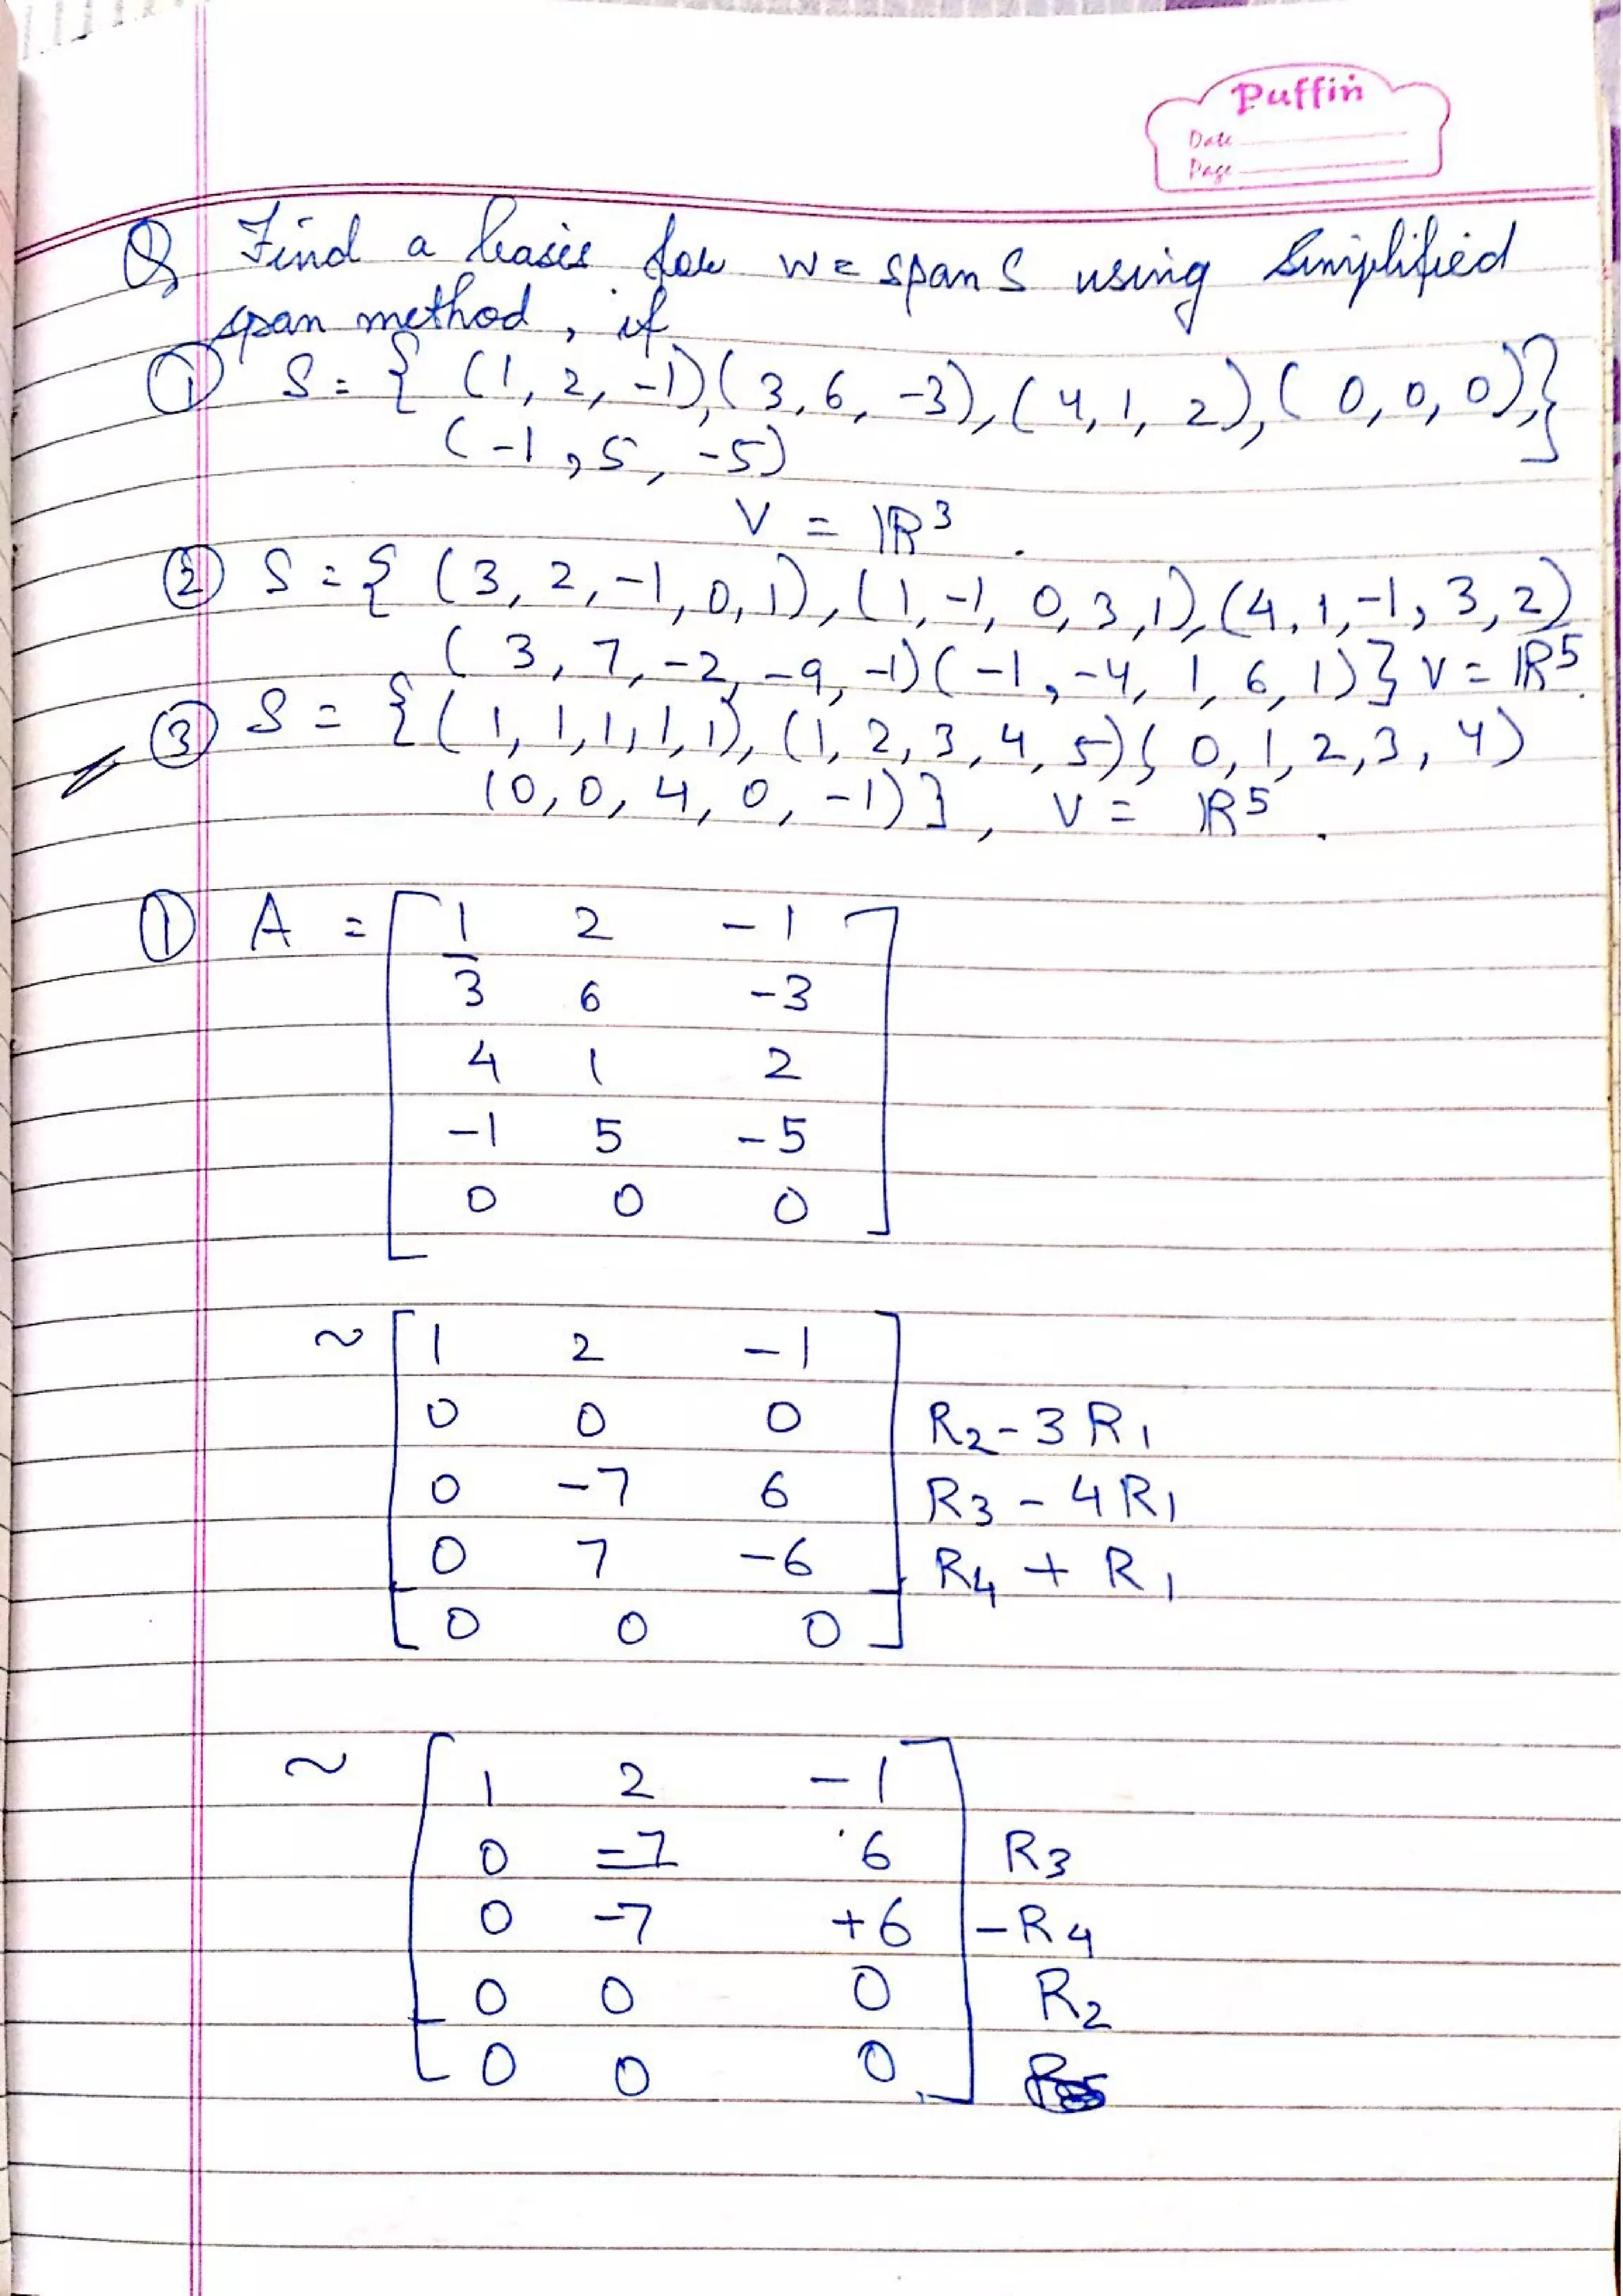 Puffin
Date
Page
Q Find a basis for W = span S using Simplified
span method, if
① S = { (1, 2, -1), (3, 6, -3), (4, 1, 2), (0, 0, 0), }
(-1, 5, -5)
V = ℝ³.
② S = { (3, 2, -1, 0, 1), (1, -1, 0, 3, 1), (4, 1, -1, 3, 2)
(3, 7, -2, -9, -1) (-1, -4, 1, 6, 1) } V = ℝ⁵.
③ S = { (1, 1, 1, 1, 1), (1, 2, 3, 4, 5) ( 0, 1, 2, 3, 4)
(0, 0, 4, 0, -1) }, V = ℝ⁵.
① A = [ 1 2 -1 ]
3 6 -3
4 1 2
-1 5 -5
0 0 0
~ [ 1 2 -1 ]
0 0 0 R2 - 3 R1
0 -7 6 R3 - 4 R1
0 7 -6 R4 + R1
0 0 0
~ [ 1 2 -1 ]
0 -7 6 R3
0 -7 +6 -R4
0 0 0 R2
0 0 0